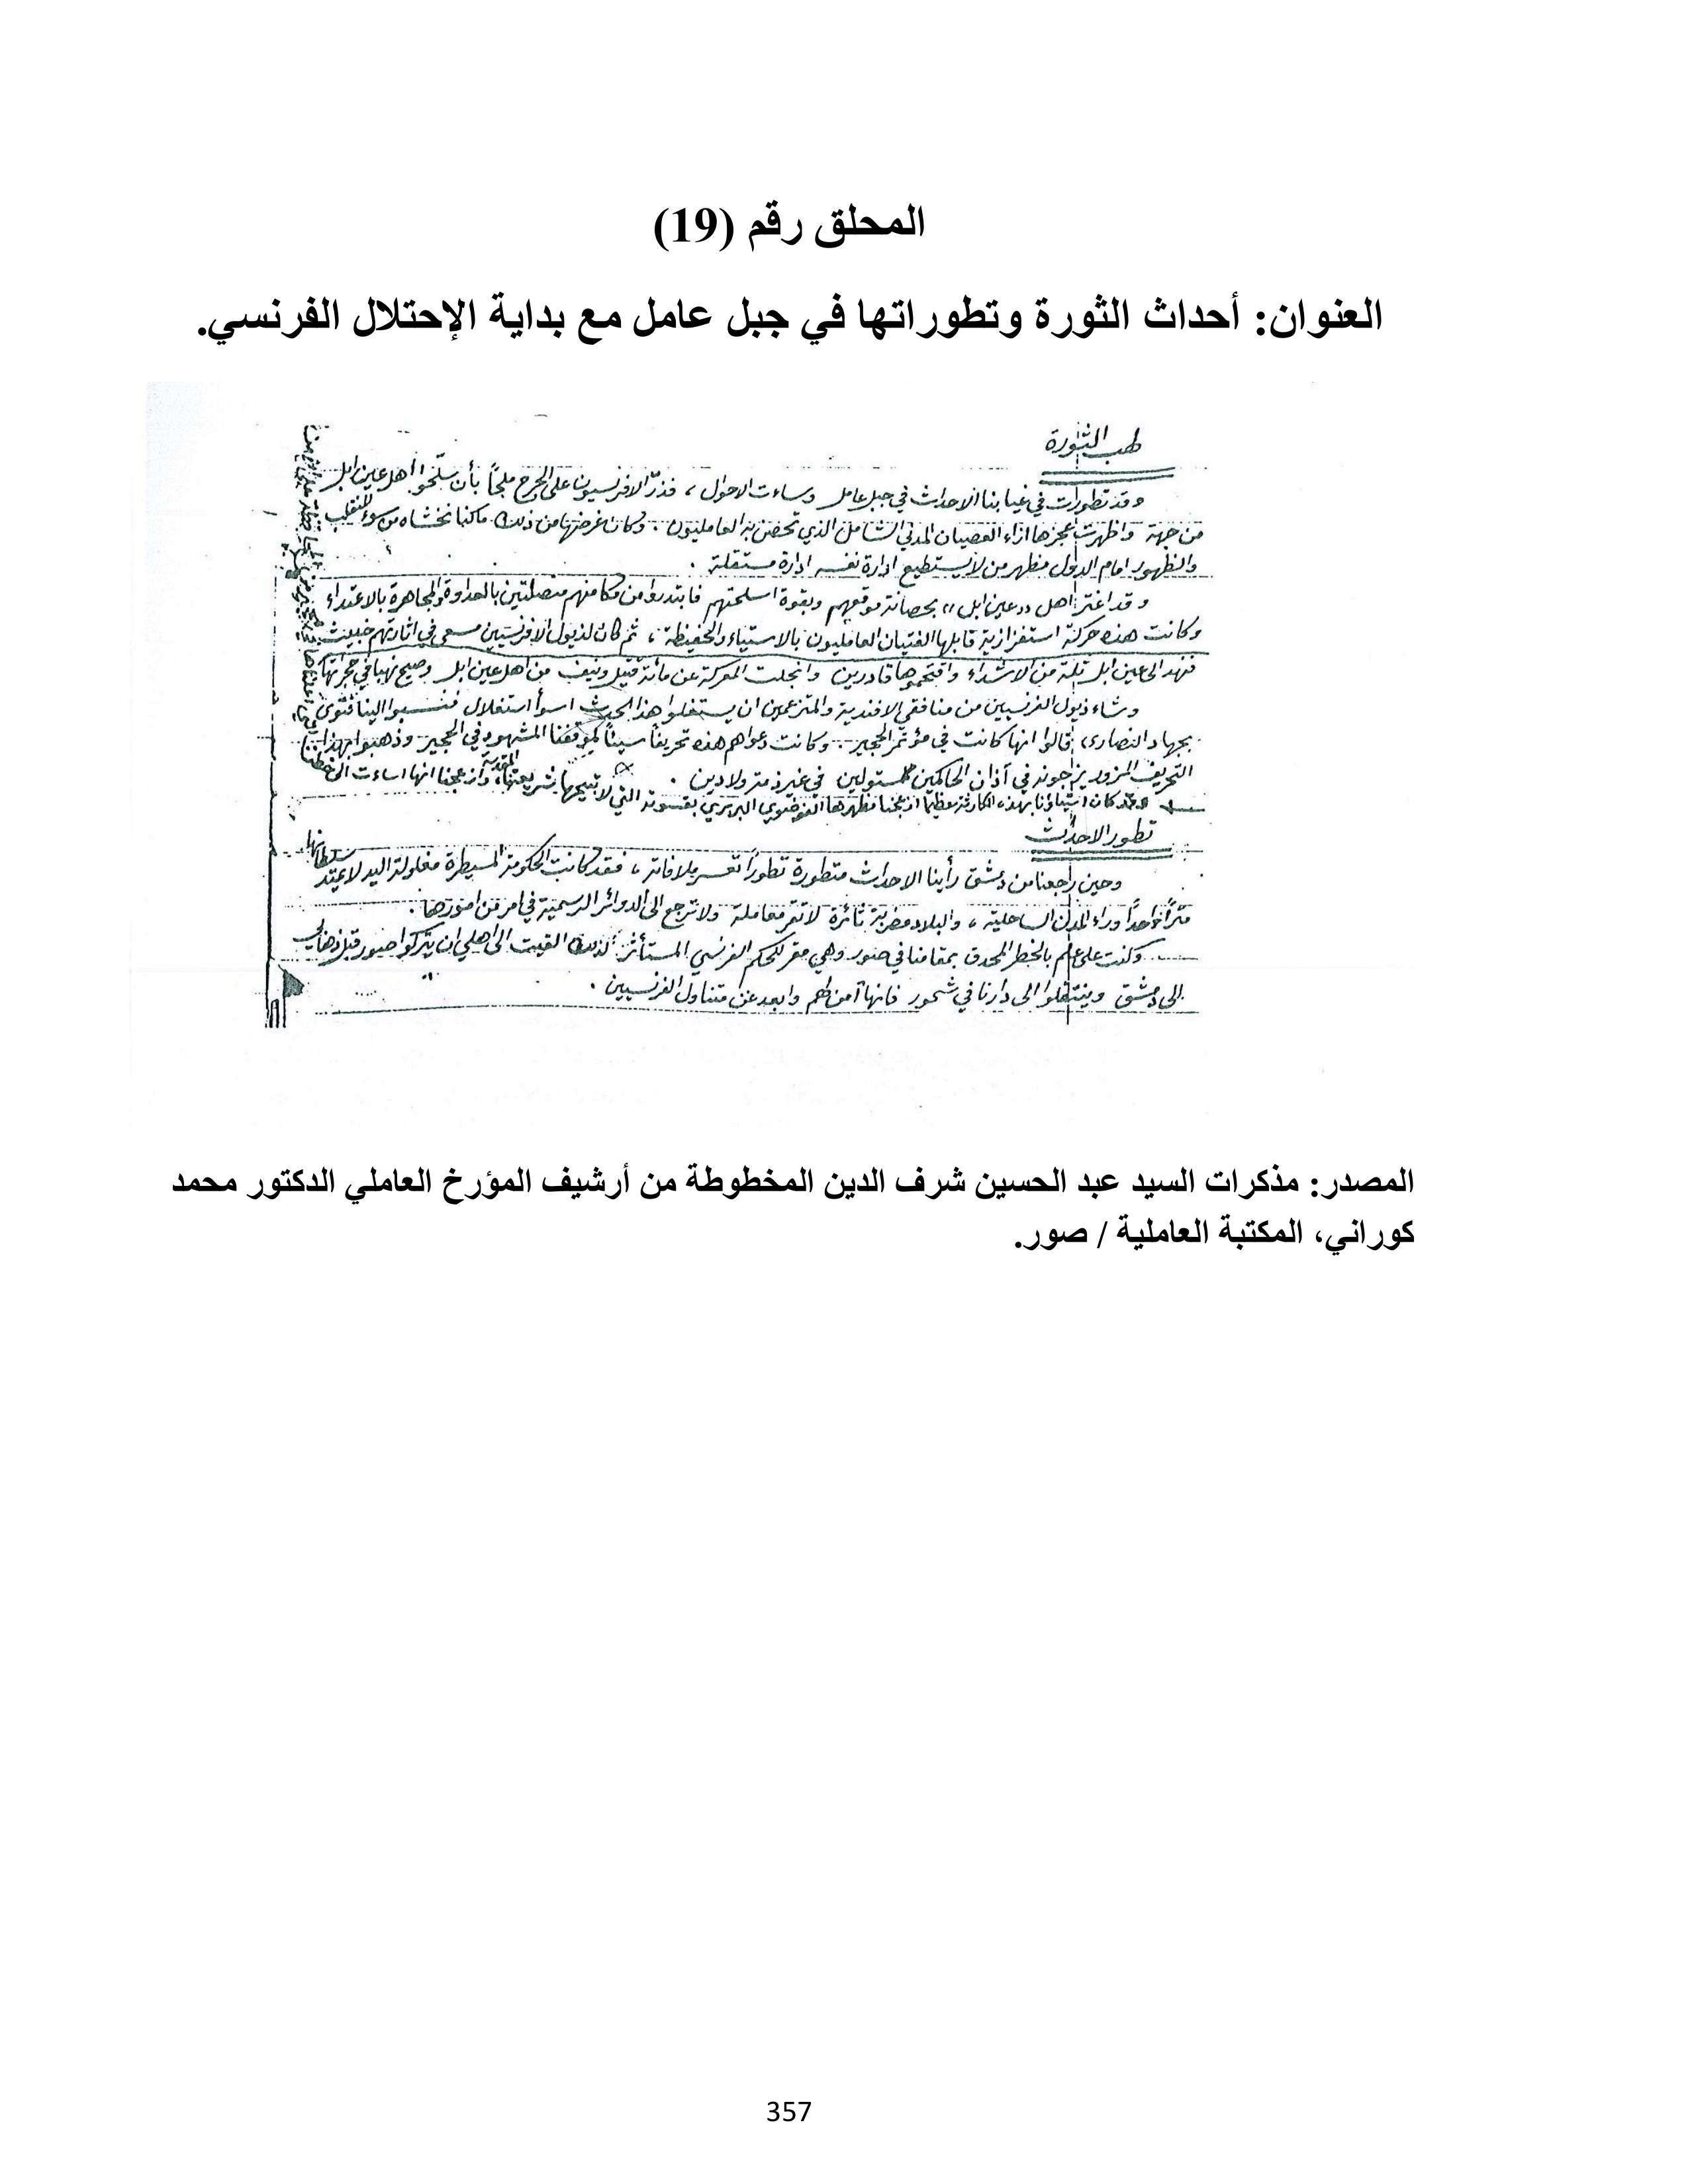 المحلق رقم (19)
العنوان: أحداث الثورة وتطوراتها في جبل عامل مع بداية الإحتلال الفرنسي.
لهب الثورة
وقد تطورت في غيابنا الاحداث في جبل عامل وساءت الاحوال، فذرّ الافرنسيون على الجرح ملحاً بأن سلّحوا أهل عين ابل
من جهة واظهرت عجزها ازاء العصيان المدني الشامل الذي تحصن به العامليون. وكان غرضها من ذلك ما كنا نخشاه من سوء المنقلب
والظهور امام الدول مظهر من لا يستطيع ادارة نفسه ادارة مستقلة.
وقد اغتر اهل «عين ابل» بحصانة موقعهم وبقوة اسلحتهم فابتدروا من مكامنهم متصلتين بالعداوة والمجاهرة بالاعتداء
وكانت هذه حركة استفزازية قابلها الفتيان العامليون بالاستياء والحفيظة، ثم كان لذيول الافرنسيين مسعى في اثارتهم خبيث
فنهد الى عين ابل ثلة من الاشداء واقتحموها قادرين وانجلت المعركة عن مائة قتيل ونيف من اهل عين ابل وصيح نهبا في حجراتها
وشاء ذيول الفرنسيين من منافقي الافندية والمتزعمين ان يستغلوا هذا الحدث اسوأ استغلال فنسبوا الينا فتوى
بجهاد النصارى، قالوا انها كانت في مؤتمر الحجير. وكانت دعواهم هذه تحريفاً سيئاً لموقفنا المشهود في الحجير وذهبوا بهذا
التحريف المزور يزجونه في آذان الحاكمين المستولين في غير ذمة ولا دين.
وقد كان استياؤنا بهذه الكارثة عظيما ازعجنا مظهرها الفوضوي البربري بقسوته التي لا تبيحها شريعتنا المقدسة، وازعجنا انها اساءت الى خطتنا
تطور الاحداث
وحين راجعنا من دمشق رأينا الاحداث متطورة تطوراً تعسر ملافاته، فقد كانت الحكومة المسيطرة مغلولة اليد لا يمتد سلطانها
متراً واحداً وراء المدن الساحلية، والبلاد مضربة ثائرة لا تتم معاملة ولا ترجع الى الدوائر الرسمية في امر من امورها.
وكنت على علم بالخطر المحدق بمقامنا في صور وهي مقر للحكم الفرنسي المستأثر لذلك القيت الى اهلي ان يتركوا صور قبل ذهابي
الى دمشق وينتقلوا الى دارنا في شحور فانها آمن لهم وابعد عن متناول الفرنسيين.
المصدر: مذكرات السيد عبد الحسين شرف الدين المخطوطة من أرشيف المؤرخ العاملي الدكتور محمد
كوراني، المكتبة العاملية / صور.
357